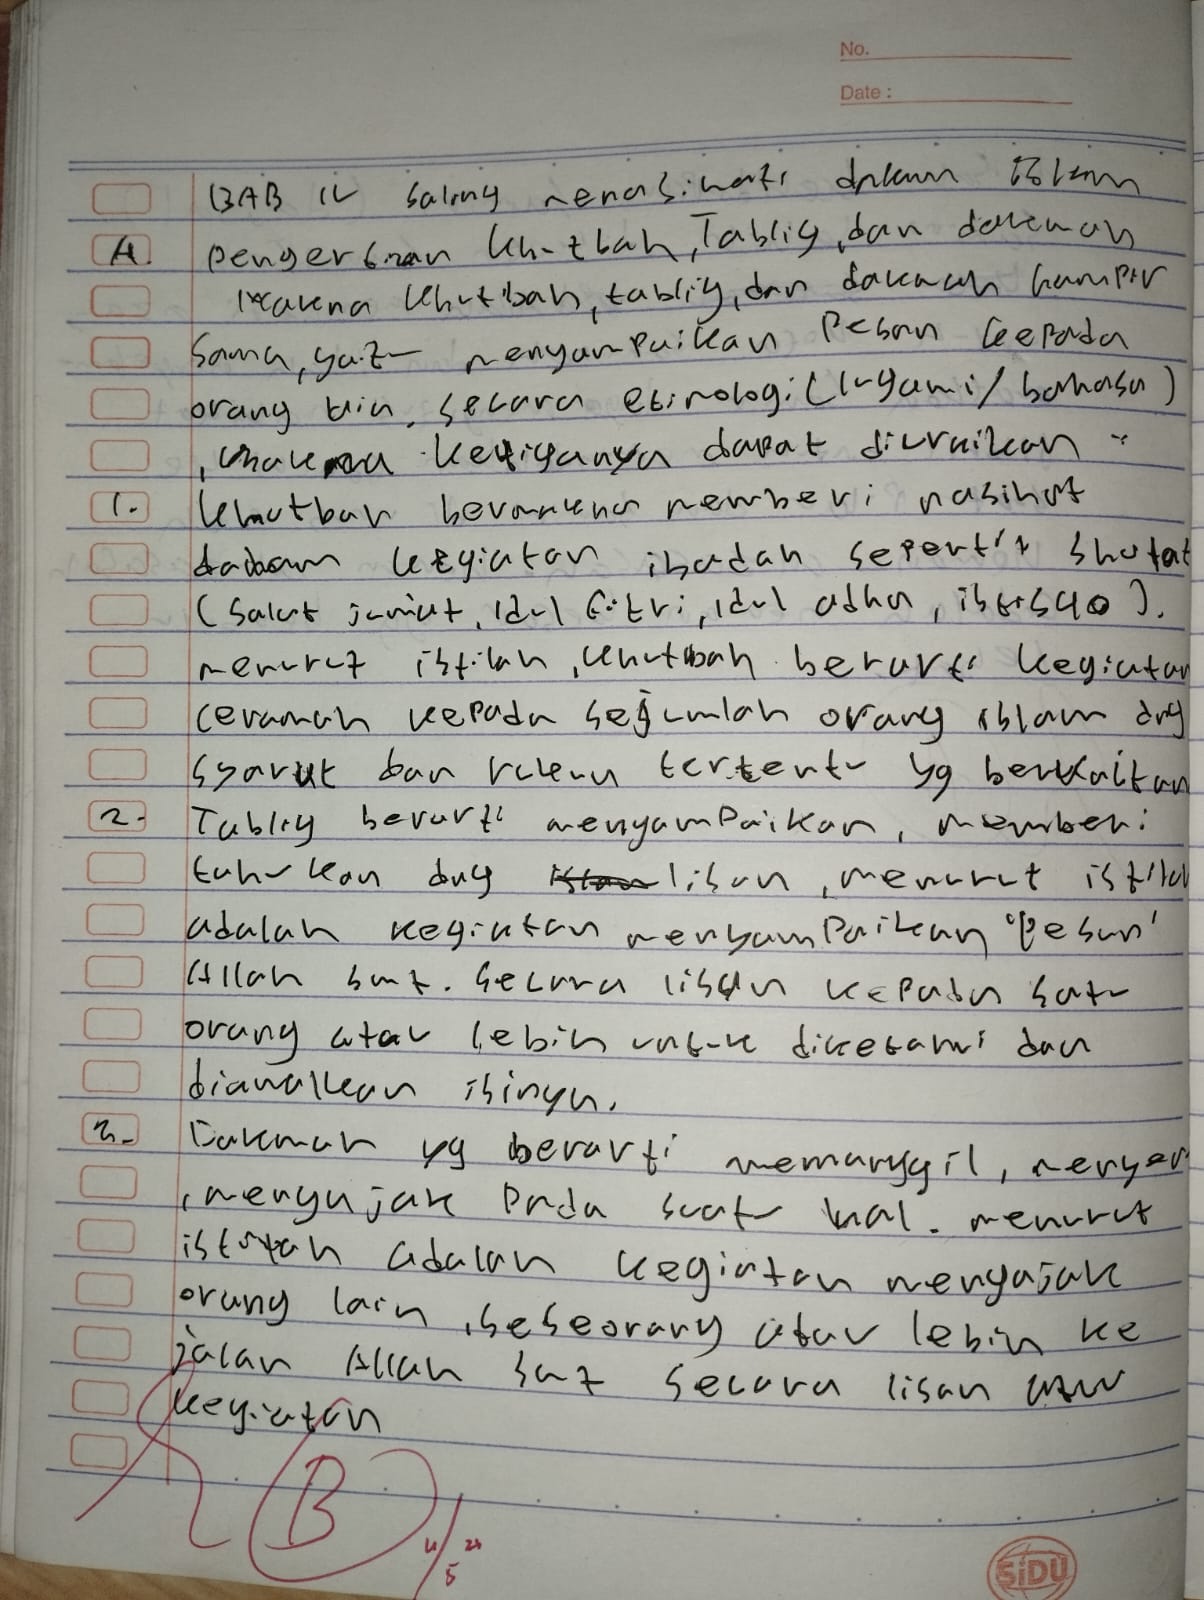 No.
Date :
BAB IV Saling menasihati dalam Islam
A. Pengertian Khutbah, Tablig, dan dakwah
Makna Khutbah, tablig, dan dakwah hampir
Sama, yaitu menyampaikan Pesan kepada
orang lain. secara etimologi (lugawi/bahasa)
, makna ketiganya dapat diuraikan :
1. Khutbah bermakna memberi nasihat
dalam kegiatan ibadah seperti Sholat
(Salat jum'at, idul fitri, idul adha, istisqo).
menurut istilah, khutbah berarti kegiatan
ceramah kepada sejumlah orang islam dng
syarat dan rukun tertentu yg berkaitan
2. Tablig berarti menyampaikan, memberi
tahukan dng lisan, menurut istilah
adalah kegiatan menyampaikan 'Pesan'
Allah Swt. Secara lisan kepada satu
orang atau lebih untuk diketahui dan
diamalkan isinya.
3. Dakwah yg berarti memanggil, menyer
, mengajak Pada suatu hal. menurut
istilah adalah kegiatan mengajak
orang lain, seseorang atau lebih ke
jalan Allah Swt secara lisan atau
kegiatan
B
SiDU